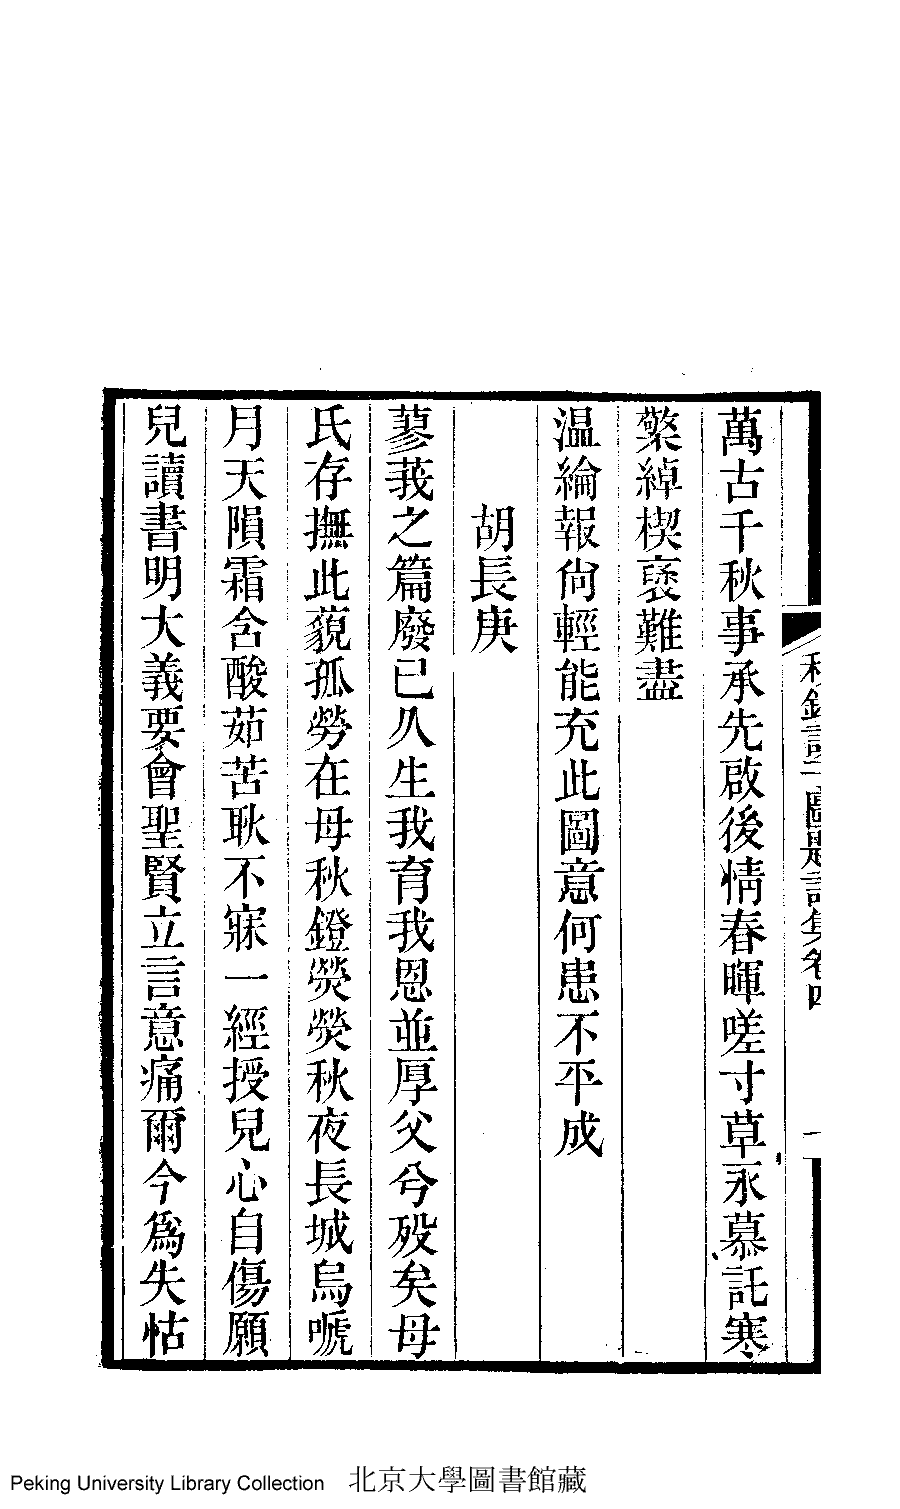 萬古千秋事承先啟後情春暉嗟寸草永慕託寒
檠綽楔褒難盡
溫綸報尙輕能充此圖意何患不平成
胡長庚
蓼莪之篇廢已久生我育我恩並厚父兮歿矣母
氏存撫此藐孤勞在母秋鐙熒熒秋夜長城烏嗁
月天隕霜含酸茹苦耿不寐一經授兒心自傷願
兒讀書明大義要會聖賢立言意痛爾今爲失怙
題詩集卷四
Peking University Library Collection 北京大學圖書館藏